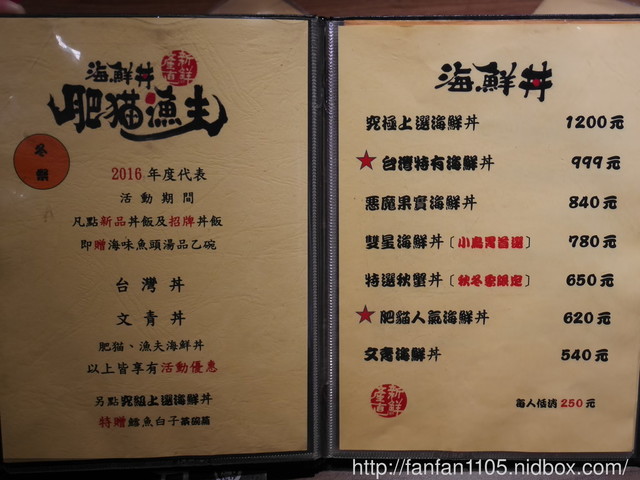 海鮮丼
新鮮
產直
肥猫漁夫
冬祭
2016 年度代表
活動期間
凡點新品丼飯及招牌丼飯
即贈海味魚頭湯品乙碗
台灣丼
文青丼
肥猫、漁夫海鮮丼
以上皆享有活動優惠
另點究組上選海鮮丼
特贈鱈魚白子茶碗蒸
海鮮丼
究極上選海鮮丼 1200 元
台灣特有海鮮丼 999 元
惡魔果實海鮮丼 840 元
雙星海鮮丼〔小鳥胃首選〕 780 元
特選秋蟹丼〔秋冬季限定〕 650 元
肥貓人氣海鮮丼 620 元
文青海鮮丼 540 元
新鮮
產直
每人低消 250 元
http://fanfan1105.nidbox.com/